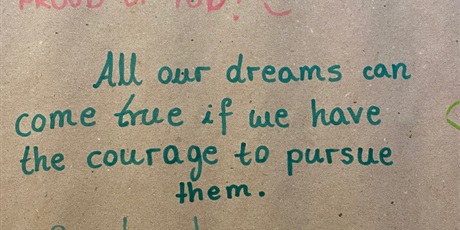 PROUD OF YOU!
All our dreams can
come true if we have
the courage to pursue
them.